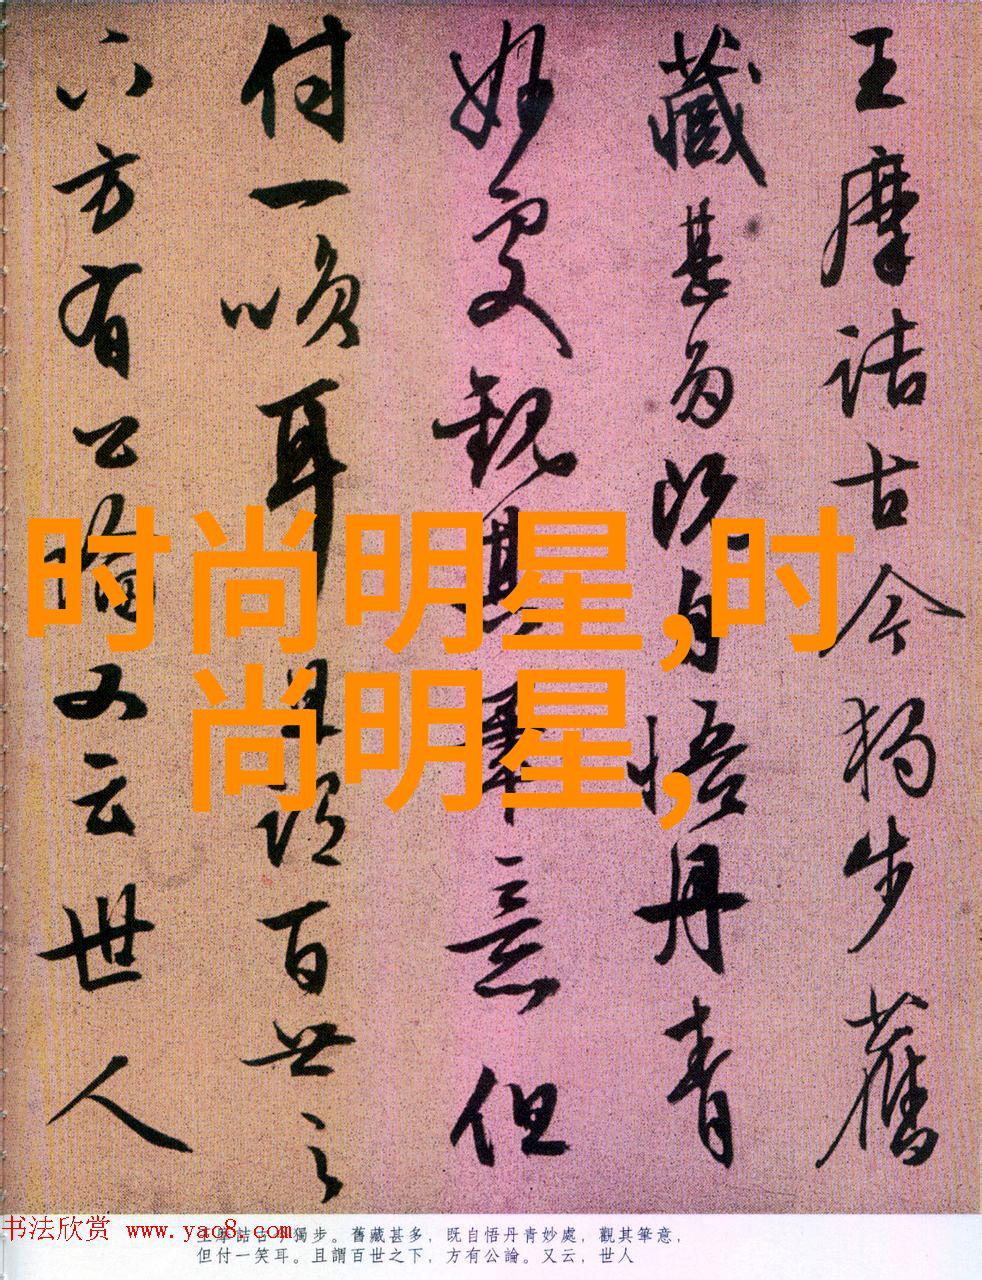 王摩诘古今獨步舊
藏甚多既自悟丹青
妙處觀其筆意但
付一唉耳且謂百世之
下方有公論又云世人
时尚明星,时
尚明星,
书法欣赏 www.yac8.com
王摩詰古今獨步。舊藏甚多，既自悟丹青妙處，觀其筆意，
但付一笑耳。且謂百世之下，方有公論。又云，世人